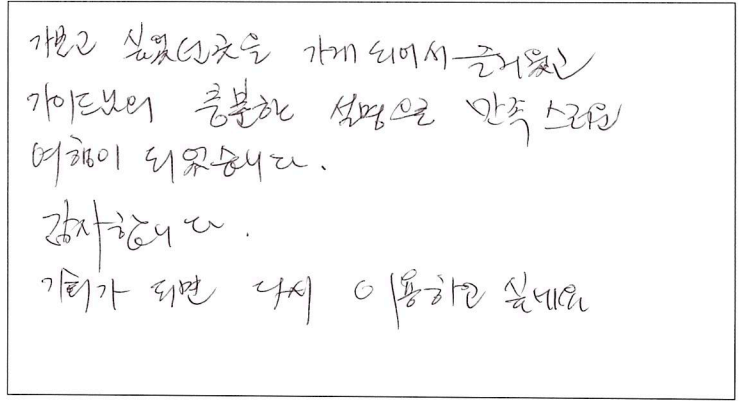 가보고 싶었던곳을 가게 되어서 즐거웠고
가이드님의 충분한 설명으로 만족 스러운
여행이 되었습니다.
감사합니다.
기회가 되면 다시 이용하고 싶네요